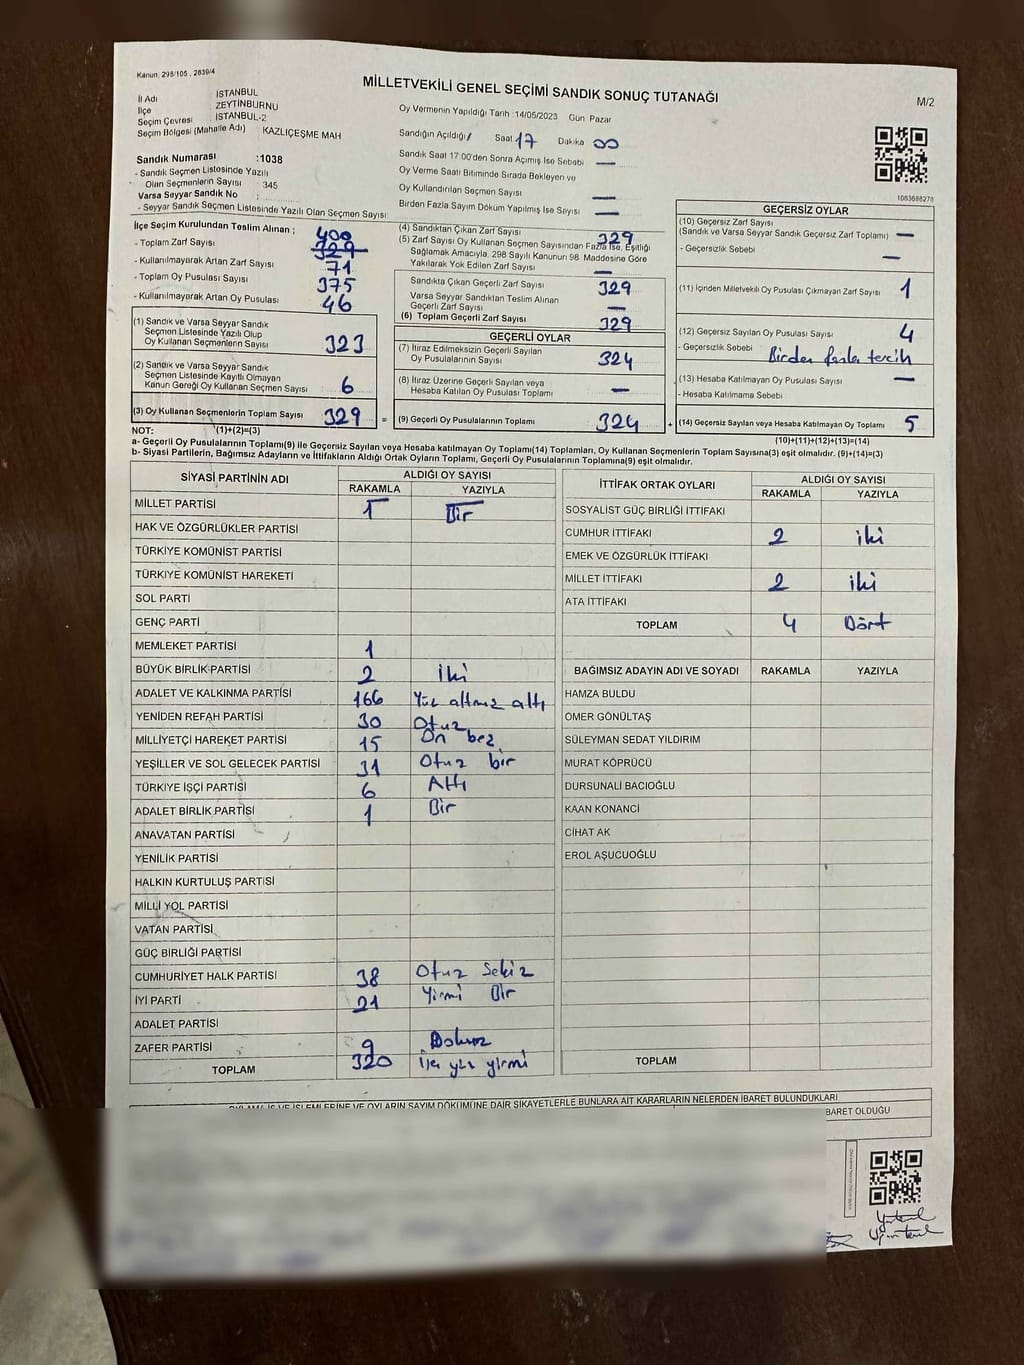 Kanun: 298/105 , 2839/4
MİLLETVEKİLİ GENEL SEÇİMİ SANDIK SONUÇ TUTANAĞI
M/2
İl Adı İSTANBUL
İlçe ZEYTİNBURNU
Seçim Çevresi İSTANBUL-2
Seçim Bölgesi (Mahalle Adı) KAZLIÇEŞME MAH
Sandık Numarası :1038
- Sandık Seçmen Listesinde Yazılı
Olan Seçmenlerin Sayısı : 345
Varsa Seyyar Sandık No :
- Seyyar Sandık Seçmen Listesinde Yazılı Olan Seçmen Sayısı:
Oy Vermenin Yapıldığı Tarih :14/05/2023 Gün Pazar
Sandığın Açıldığı Saat 17 Dakika 00
Sandık Saat 17:00'den Sonra Açımış İse Sebebi —
Oy Verme Saati Bitiminde Sırada Bekleyen ve
Oy Kullandırılan Seçmen Sayısı —
Birden Fazla Sayım Döküm Yapılmış İse Sayısı —
1083688278
İlçe Seçim Kurulundan Teslim Alınan ;
400
- Toplam Zarf Sayısı 329
- Kullanılmayarak Artan Zarf Sayısı 71
- Toplam Oy Pusulası Sayısı 375
- Kullanılmayarak Artan Oy Pusulası 46
(1) Sandık ve Varsa Seyyar Sandık
Seçmen Listesinde Yazılı Olup
Oy Kullanan Seçmenlerin Sayısı 323
(2) Sandık ve Varsa Seyyar Sandık
Seçmen Listesinde Kayıtlı Olmayan
Kanun Gereği Oy Kullanan Seçmen Sayısı 6
(3) Oy Kullanan Seçmenlerin Toplam Sayısı 329 =
(4) Sandıktan Çıkan Zarf Sayısı 329
(5) Zarf Sayısı Oy Kullanan Seçmen Sayısından Fazla İse, Eşitliği
Sağlamak Amacıyla, 298 Sayılı Kanunun 98. Maddesine Göre
Yakılarak Yok Edilen Zarf Sayısı —
Sandıkta Çıkan Geçerli Zarf Sayısı 329
Varsa Seyyar Sandıktan Teslim Alınan
Geçerli Zarf Sayısı —
(6) Toplam Geçerli Zarf Sayısı 329
GEÇERLİ OYLAR
(7) İtiraz Edilmeksizin Geçerli Sayılan
Oy Pusulalarının Sayısı 324
(8) İtiraz Üzerine Geçerli Sayılan veya
Hesaba Katılan Oy Pusulası Toplamı —
(9) Geçerli Oy Pusulalarının Toplamı 324 +
GEÇERSİZ OYLAR
(10) Geçersiz Zarf Sayısı
(Sandık ve Varsa Seyyar Sandık Geçersiz Zarf Toplamı) —
- Geçersizlik Sebebi —
(11) İçinden Milletvekili Oy Pusulası Çıkmayan Zarf Sayısı 1
(12) Geçersiz Sayılan Oy Pusulası Sayısı 4
- Geçersizlik Sebebi Birden fazla tercih
(13) Hesaba Katılmayan Oy Pusulası Sayısı —
- Hesaba Katılmama Sebebi
(14) Geçersiz Sayılan veya Hesaba Katılmayan Oy Toplamı 5
NOT: (1)+(2)=(3)
(10)+(11)+(12)+(13)=(14)
a- Geçerli Oy Pusulalarının Toplamı(9) ile Geçersiz Sayılan veya Hesaba katılmayan Oy Toplamı(14) Toplamları, Oy Kullanan Seçmenlerin Toplam Sayısına(3) eşit olmalıdır. (9)+(14)=(3)
b- Siyasi Partilerin, Bağımsız Adayların ve İttifakların Aldığı Ortak Oyların Toplamı, Geçerli Oy Pusulalarının Toplamına(9) eşit olmalıdır.
SİYASİ PARTİNİN ADI
ALDIĞI OY SAYISI
RAKAMLA YAZIYLA
MİLLET PARTİSİ 1 Bir
HAK VE ÖZGÜRLÜKLER PARTİSİ
TÜRKİYE KOMÜNİST PARTİSİ
TÜRKİYE KOMÜNİST HAREKETİ
SOL PARTİ
GENÇ PARTİ
MEMLEKET PARTİSİ 1
BÜYÜK BİRLİK PARTİSİ 2 İki
ADALET VE KALKINMA PARTİSİ 166 Yüz altmış altı
YENİDEN REFAH PARTİSİ 30 Otuz
MİLLİYETÇİ HAREKET PARTİSİ 15 On beş
YEŞİLLER VE SOL GELECEK PARTİSİ 31 Otuz bir
TÜRKİYE İŞÇİ PARTİSİ 6 Altı
ADALET BİRLİK PARTİSİ 1 Bir
ANAVATAN PARTİSİ
YENİLİK PARTİSİ
HALKIN KURTULUŞ PARTİSİ
MİLLİ YOL PARTİSİ
VATAN PARTİSİ
GÜÇ BİRLİĞİ PARTİSİ
CUMHURİYET HALK PARTİSİ 38 Otuz Sekiz
İYİ PARTİ 21 Yirmi Bir
ADALET PARTİSİ
ZAFER PARTİSİ 9 Dokuz
TOPLAM 320 Üç yüz yirmi
İTTİFAK ORTAK OYLARI
ALDIĞI OY SAYISI
RAKAMLA YAZIYLA
SOSYALİST GÜÇ BİRLİĞİ İTTİFAKI
CUMHUR İTTİFAKI 2 iki
EMEK VE ÖZGÜRLÜK İTTİFAKI
MİLLET İTTİFAKI 2 iki
ATA İTTİFAKI
TOPLAM 4 Dört
BAĞIMSIZ ADAYIN ADI VE SOYADI RAKAMLA YAZIYLA
HAMZA BULDU
ÖMER GÖNÜLTAŞ
SÜLEYMAN SEDAT YILDIRIM
MURAT KÖPRÜCÜ
DURSUNALİ BACIOĞLU
KAAN KONANCİ
CİHAT AK
EROL AŞUCUOĞLU
TOPLAM
OYLAMA İŞ VE İŞLEMLERİNE VE OYLARIN SAYIM DÖKÜMÜNE DAİR ŞİKAYETLERLE BUNLARA AİT KARARLARIN NELERDEN İBARET BULUNDUKLARI
BARET OLDUĞU